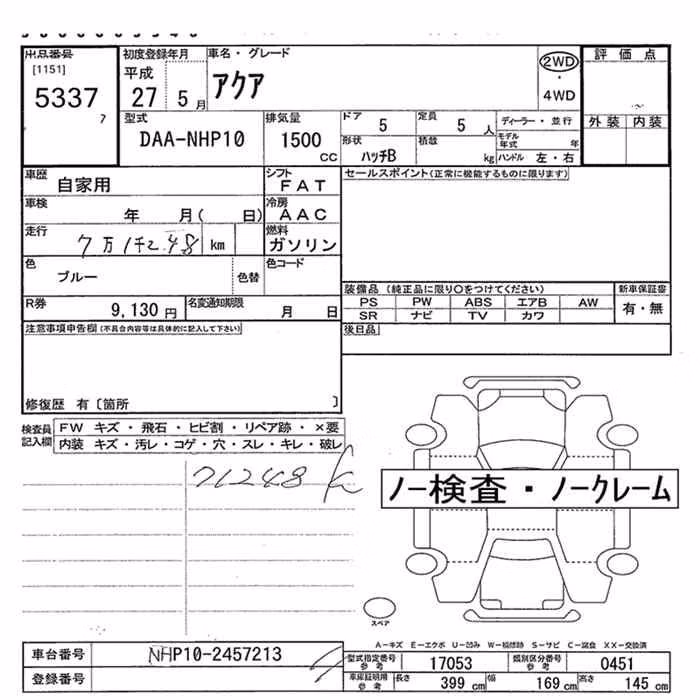 出品番号 初度登録年月 車名・グレード 評価点
[1151] 平成 アクア 2WD
5337 27 5月 ・
7 4WD
型式 排気量 ドア 5 定員 5人 ディーラー・並行 外装 内装
DAA-NHP10 1500cc 形状 ハッチB 積載 kg モデル年式 年
ハンドル 左・右
車歴 自家用 シフト FAT セールスポイント(正常に機能するものに限ります)
車検 年 月( 日) 冷房 AAC
走行 7万1千248 km 燃料 ガソリン
色 ブルー 色替 色コード
装備品 (純正品に限り○をつけてください) 新車保証書
R券 9,130円 名変通知期限 月 日 PS PW ABS エアB AW 有・無
SR ナビ TV カワ
注意事項申告欄(不具合内容等は具体的に記入して下さい) 後日品
修復歴 有〔箇所 〕
検査員記入欄 FW キズ・飛石・ヒビ割・リペア跡・×要
内装 キズ・汚レ・コゲ・穴・スレ・キレ・破レ
71248
ノー検査・ノークレーム
スペア
A-キズ E-エクボ U-凹み W-補修跡 S-サビ C-腐食 XX-交換済
車台番号 NHP10-2457213 型式指定番号参考 17053 類別区分番号参考 0451
登録番号 車庫証明用参考 長さ 399cm 幅 169cm 高さ 145cm